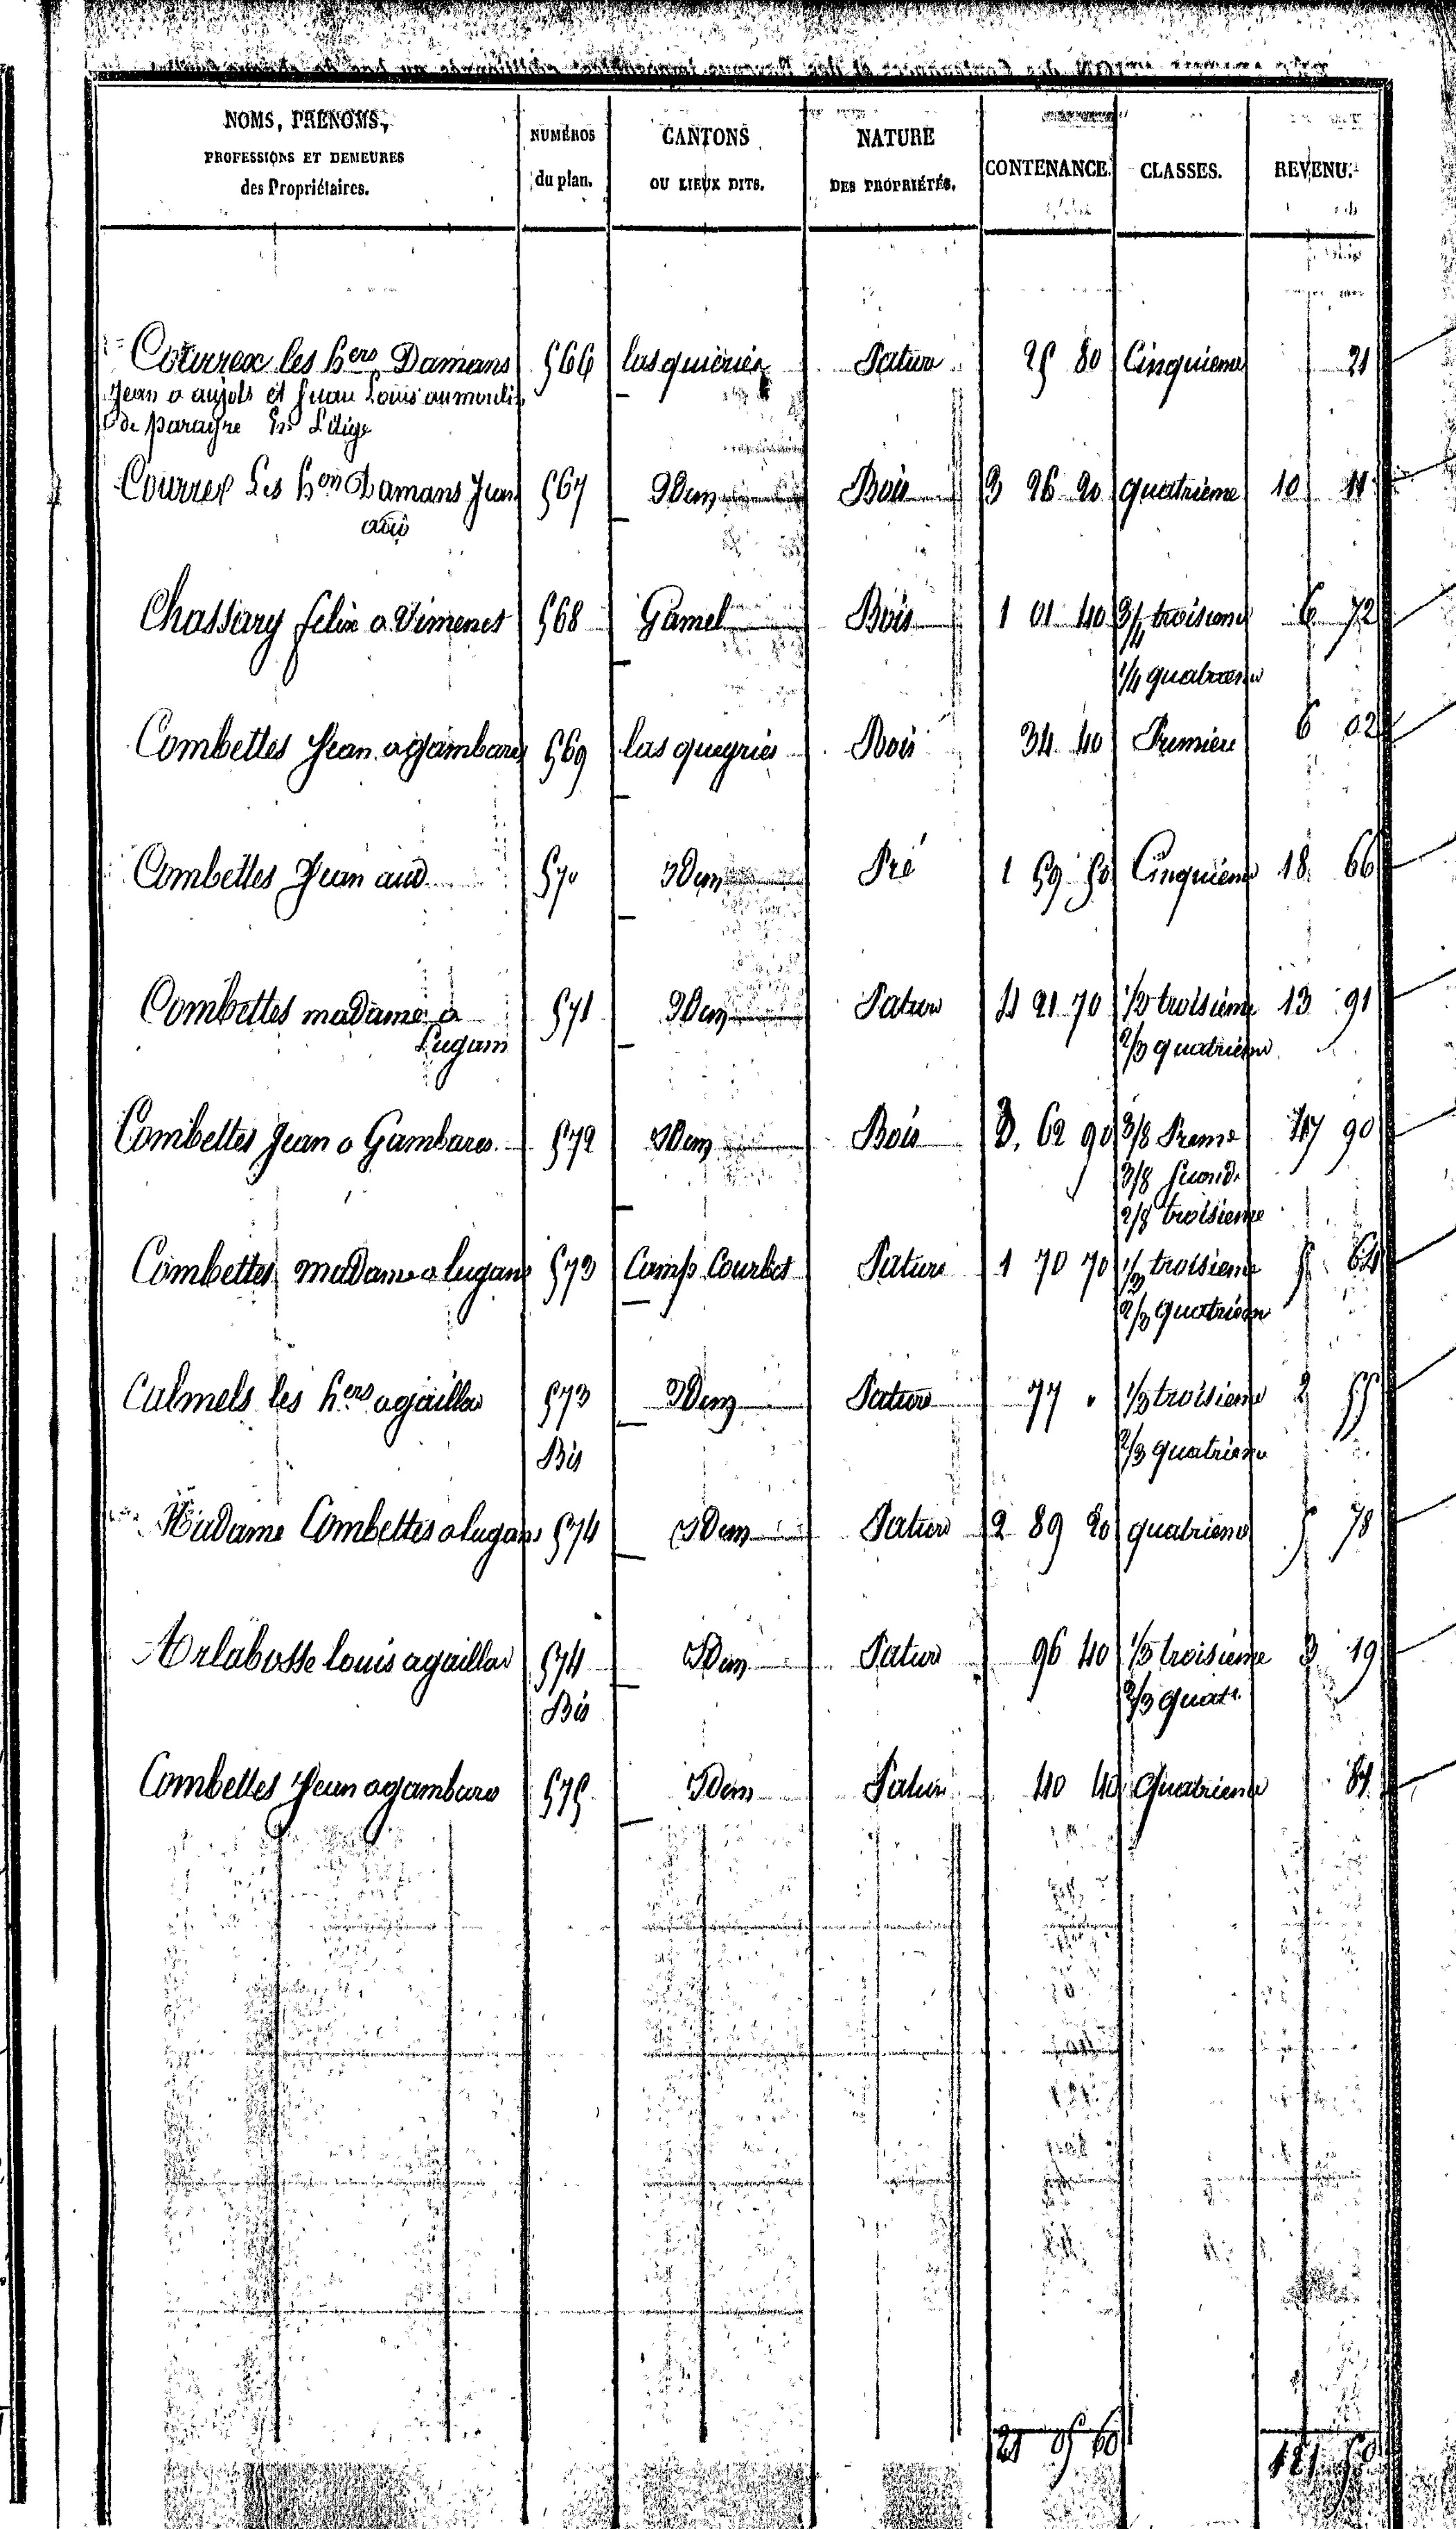 NOMS, PRÉNOMS,
PROFESSIONS ET DEMEURES
des Propriétaires.
NUMÉROS
du plan.
CANTONS
OU LIEUX DITS.
NATURE
DES PROPRIÉTÉS.
CONTENANCE.
CLASSES.
REVENU.
Courrex les hers Damans 566 lasquieries Pature 25 80 Cinquieme 21
Jean a aujols et Jean Louis au moulin
de parayre En Litige
Courrex Les hers Damans Jean 567 Idem Bois 3 26 20 quatrieme 10
Chassary felix a Vimenet 568 Gamel Bois 1 01 40 3/4 troisieme 6 72
1/4 quatrieme
Combettes Jean a gambares 569 las queyries Bois 34 40 Premiere 6 02
Combettes Jean aud 570 Idem Pré 1 59 50 Cinquieme 18 66
Combettes madame a 571 Idem Pature 4 21 70 1/3 troisieme 13 91
Lugans 2/3 quatrieme
Combettes Jean a Gambares 572 Idem Bois 3 62 90 3/8 Preme 47 90
3/8 Second
2/8 troisieme
Combettes madame a lugans 573 Camp Courbet Pature 1 70 70 1/3 troisieme 5 64
2/3 quatrieme
Calmels les hers a gaillac 573 Idem Pature 77 " 1/3 troisieme 2 55
Bis 2/3 quatrieme
Madame Combettes a lugans 574 Idem Pature 2 89 20 quatrieme 5 78
Arlabosse louis a gaillac 574 Idem Pature 96 40 1/3 troisieme 3 19
Bis 2/3 quatr.
Combettes Jean a gambares 575 Idem Pature 40 40 Quatrieme 81
21 05 60 121 50